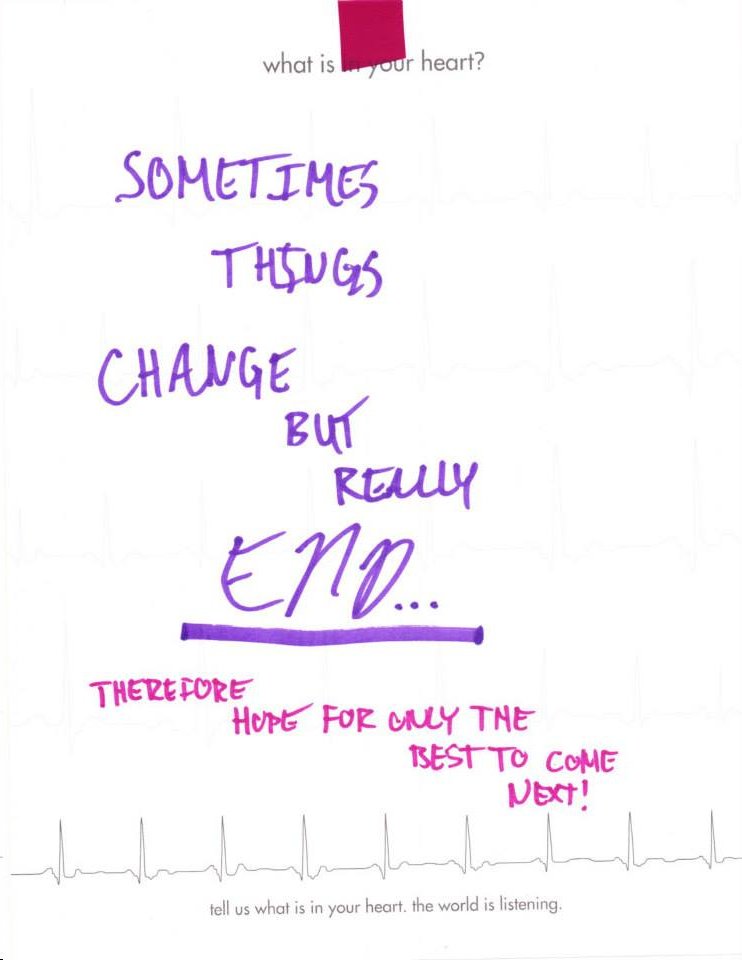 what is in your heart?
SOMETIMES
THINGS
CHANGE
BUT
REALLY
END...
THEREFORE
HOPE FOR ONLY THE
BEST TO COME
NEXT!
tell us what is in your heart. the world is listening.